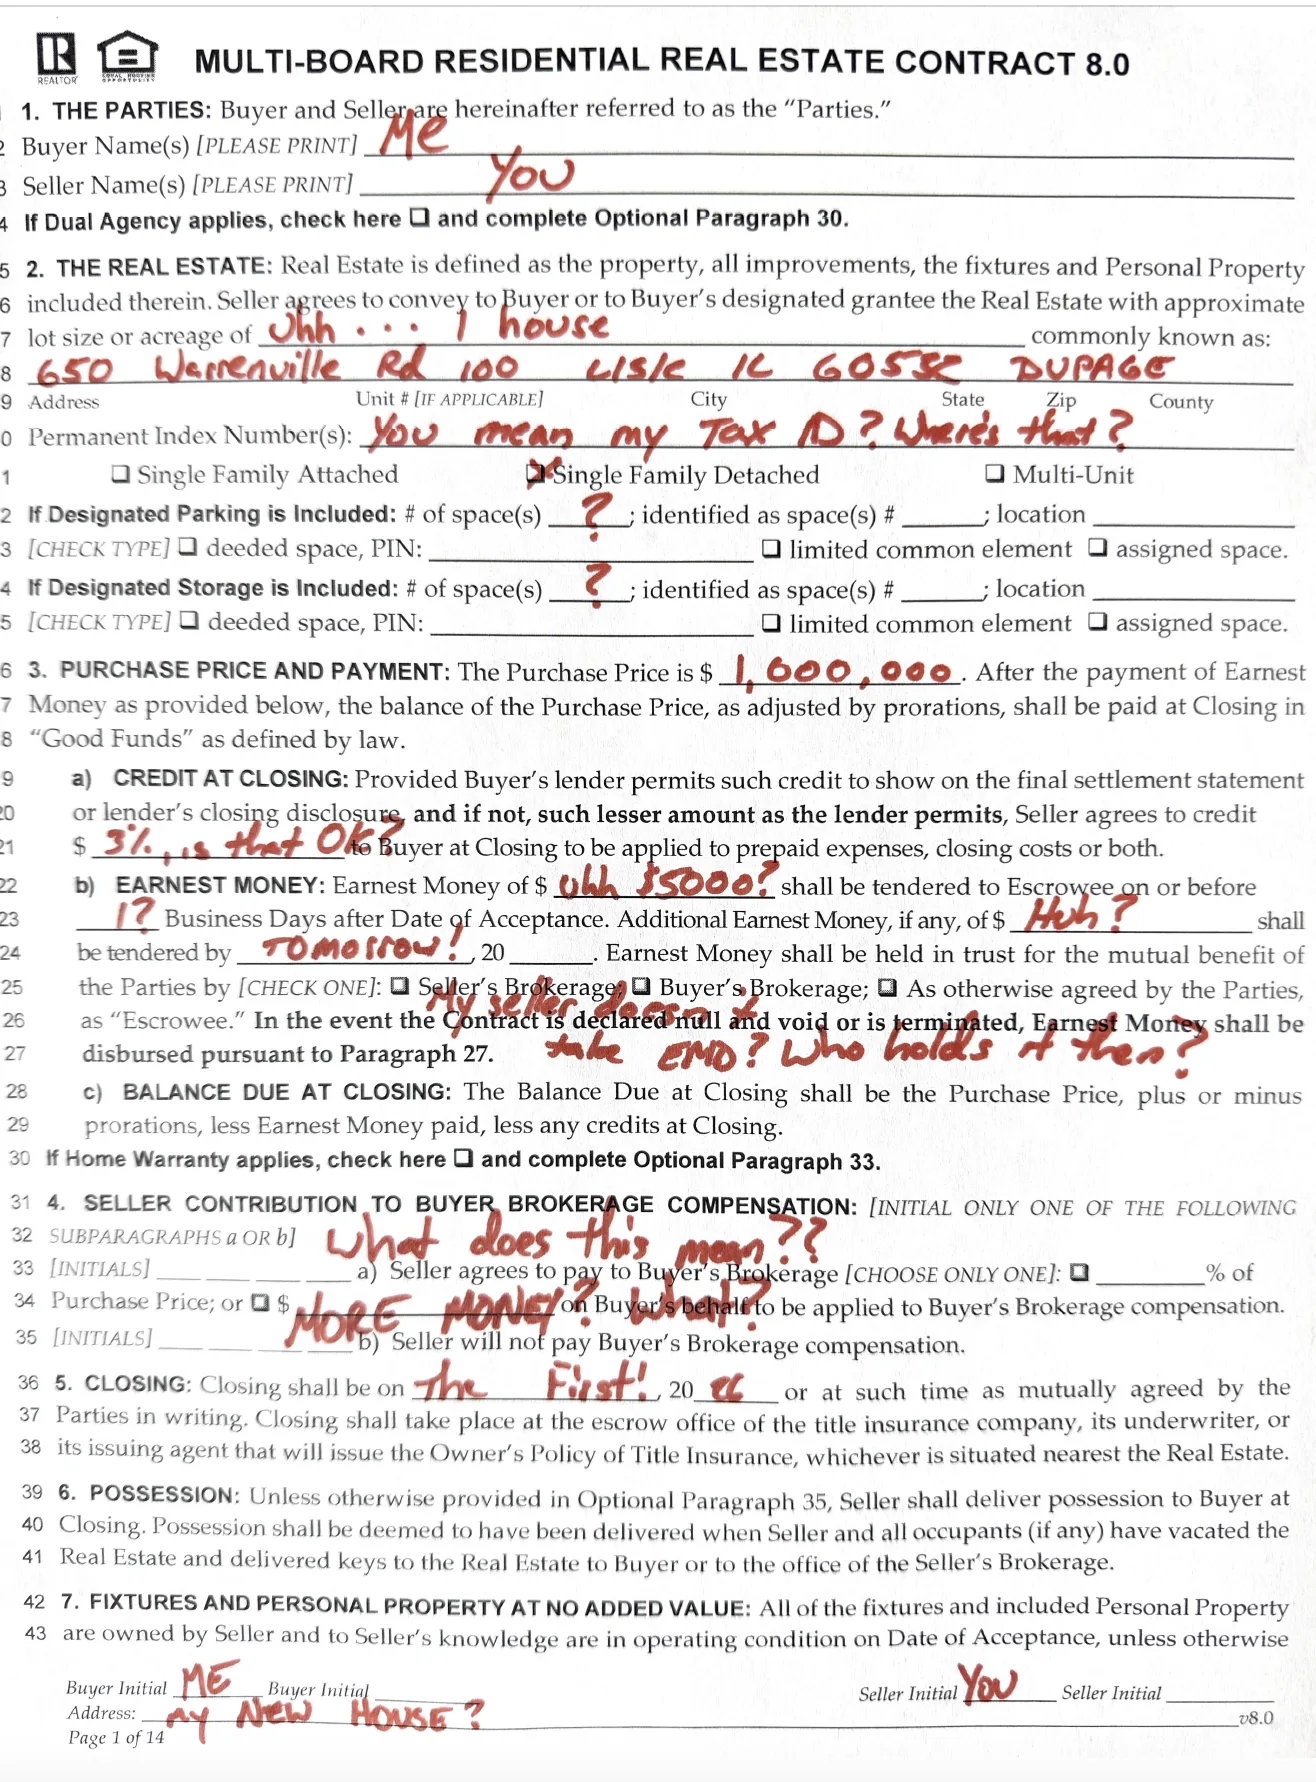 REALTOR
EQUAL HOUSING OPPORTUNITY
MULTI-BOARD RESIDENTIAL REAL ESTATE CONTRACT 8.0
1. THE PARTIES: Buyer and Seller are hereinafter referred to as the “Parties.”
2 Buyer Name(s) [PLEASE PRINT] Me
3 Seller Name(s) [PLEASE PRINT] You
4 If Dual Agency applies, check here ❑ and complete Optional Paragraph 30.
5 2. THE REAL ESTATE: Real Estate is defined as the property, all improvements, the fixtures and Personal Property
6 included therein. Seller agrees to convey to Buyer or to Buyer's designated grantee the Real Estate with approximate
7 lot size or acreage of Uhh . . . . 1 house commonly known as:
8 650 Warrenville Rd 100 Lisle IL 60532 DUPAGE
9 Address Unit # [IF APPLICABLE] City State Zip County
0 Permanent Index Number(s): You mean my Tax ID? Where's that?
1 ❑ Single Family Attached ❑ Single Family Detached ❑ Multi-Unit
2 If Designated Parking is Included: # of space(s) ? ; identified as space(s) # ______; location ______
3 [CHECK TYPE] ❑ deeded space, PIN: ______ ❑ limited common element ❑ assigned space.
4 If Designated Storage is Included: # of space(s) ? ; identified as space(s) # ______; location ______
5 [CHECK TYPE] ❑ deeded space, PIN: ______ ❑ limited common element ❑ assigned space.
6 3. PURCHASE PRICE AND PAYMENT: The Purchase Price is $ 1,600,000. After the payment of Earnest
7 Money as provided below, the balance of the Purchase Price, as adjusted by prorations, shall be paid at Closing in
8 “Good Funds” as defined by law.
9 a) CREDIT AT CLOSING: Provided Buyer's lender permits such credit to show on the final settlement statement
20 or lender's closing disclosure, and if not, such lesser amount as the lender permits, Seller agrees to credit
21 $ 3%, is that OK? to Buyer at Closing to be applied to prepaid expenses, closing costs or both.
22 b) EARNEST MONEY: Earnest Money of $ Uhh $5000? shall be tendered to Escrowee on or before
23 1? Business Days after Date of Acceptance. Additional Earnest Money, if any, of $ Huh? shall
24 be tendered by TOMORROW!, 20 ______. Earnest Money shall be held in trust for the mutual benefit of
25 the Parties by [CHECK ONE]: ❑ Seller's Brokerage; ❑ Buyer's Brokerage; ❑ As otherwise agreed by the Parties,
My seller doesn't
26 as “Escrowee.” In the event the Contract is declared null and void or is terminated, Earnest Money shall be
27 disbursed pursuant to Paragraph 27. take EMD? Who holds it then?
28 c) BALANCE DUE AT CLOSING: The Balance Due at Closing shall be the Purchase Price, plus or minus
29 prorations, less Earnest Money paid, less any credits at Closing.
30 If Home Warranty applies, check here ❑ and complete Optional Paragraph 33.
31 4. SELLER CONTRIBUTION TO BUYER BROKERAGE COMPENSATION: [INITIAL ONLY ONE OF THE FOLLOWING
32 SUBPARAGRAPHS a OR b] What does this mean??
33 [INITIALS] ____ ____ ____ ____ a) Seller agrees to pay to Buyer's Brokerage [CHOOSE ONLY ONE]: ❑ ______% of
34 Purchase Price; or ❑ $ MORE MONEY? What? on Buyer's behalf to be applied to Buyer's Brokerage compensation.
35 [INITIALS] ____ ____ ____ ____ b) Seller will not pay Buyer's Brokerage compensation.
36 5. CLOSING: Closing shall be on The First!, 20 26 or at such time as mutually agreed by the
37 Parties in writing. Closing shall take place at the escrow office of the title insurance company, its underwriter, or
38 its issuing agent that will issue the Owner's Policy of Title Insurance, whichever is situated nearest the Real Estate.
39 6. POSSESSION: Unless otherwise provided in Optional Paragraph 35, Seller shall deliver possession to Buyer at
40 Closing. Possession shall be deemed to have been delivered when Seller and all occupants (if any) have vacated the
41 Real Estate and delivered keys to the Real Estate to Buyer or to the office of the Seller's Brokerage.
42 7. FIXTURES AND PERSONAL PROPERTY AT NO ADDED VALUE: All of the fixtures and included Personal Property
43 are owned by Seller and to Seller's knowledge are in operating condition on Date of Acceptance, unless otherwise
Buyer Initial ME Buyer Initial ______ Seller Initial You Seller Initial ______
Address: MY NEW HOUSE? v8.0
Page 1 of 14